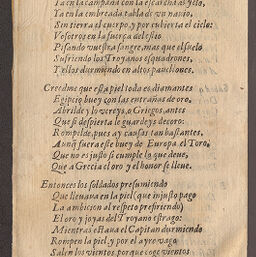 Ya en la campaña con la escarcha al yelo,
Ya en la embreada tabla de vn nauio,
Son tierra el cuerpo, y por cubierta el cielo:
Vosotros en la fuerça del estio
Pisando vuestra sangre, mas que el suelo
Sufriendo los Troyanos esquadrones,
Y ellos durmiendo en altos pauellones.
Creedme que esta piel toda es diamantes
Egipcio buey con las entrañas de oro,
Abrilde y lo vereys, o Griegos, antes
Que si despierta le guardeys decoro:
Rompelde, pues ay causas tan bastantes,
Aunq̃ fuera este buey de Europa el Toro,
Que no es justo se cumple lo que deue,
Que a Grecia el oro y el honor se lleue.
Entonces los soldados presumiendo
Que lleuaua en la piel (que injusto pago
La ambicion al respeto prefiriendo)
El oro y joyas del Troyano estrago:
Mientras estaua el Capitan durmiendo
Rompen la piel, y por el ayre vago
Salen los vientos por que coge vientos